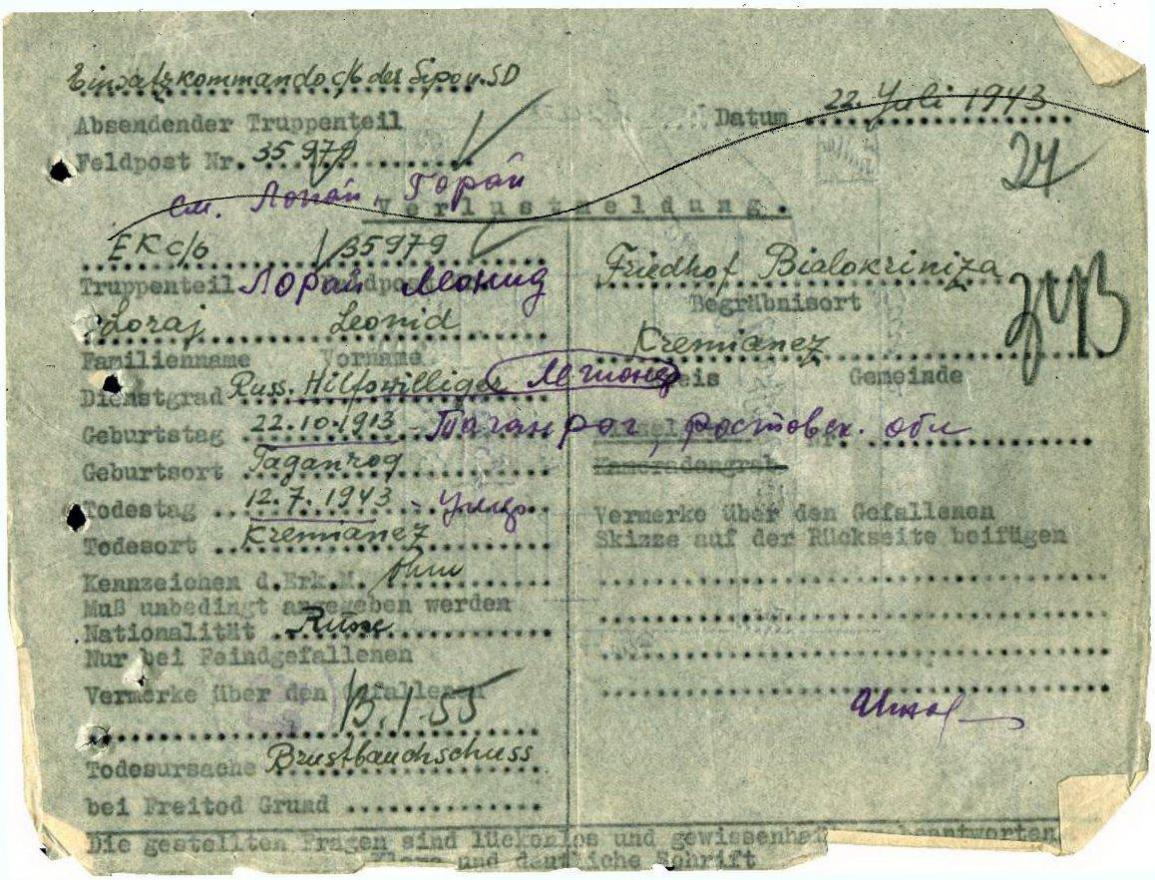 Einsatzkommando c/6 der Sipo u. SD
Absendender Truppenteil
Feldpost Nr. 35 979
Datum 22. Juli 1943
24
см. Лорай, Горай
Verlustmeldung.
EK c/6 35979
Truppenteil
Лорай Леонид
Loraj Leonid
Familienname Vorname
Dienstgrad Russ. Hilfswilliger
Geburtstag 22.10.1913 - Таганрог, ростовск. обл
Geburtsort Taganrog
Todestag 12.7.1943
Todesort Kremianez
Kennzeichen d.Erk.M. ohne
Muß unbedingt angegeben werden
Nationalität Russe
Nur bei Feindgefallenen
Vermerke über den Gefallenen
13.1.55
Todesursache Brustbauchschuss
bei Freitod Grund
Friedhof Bialokriniza
Begräbnisort
Kremianez
Kreis Gemeinde
Kameradengrab
Vermerke über den Gefallenen
Skizze auf der Rückseite beifügen
Die gestellten Fragen sind lückenlos und gewissenhaft beantworten
und deutliche Schrift